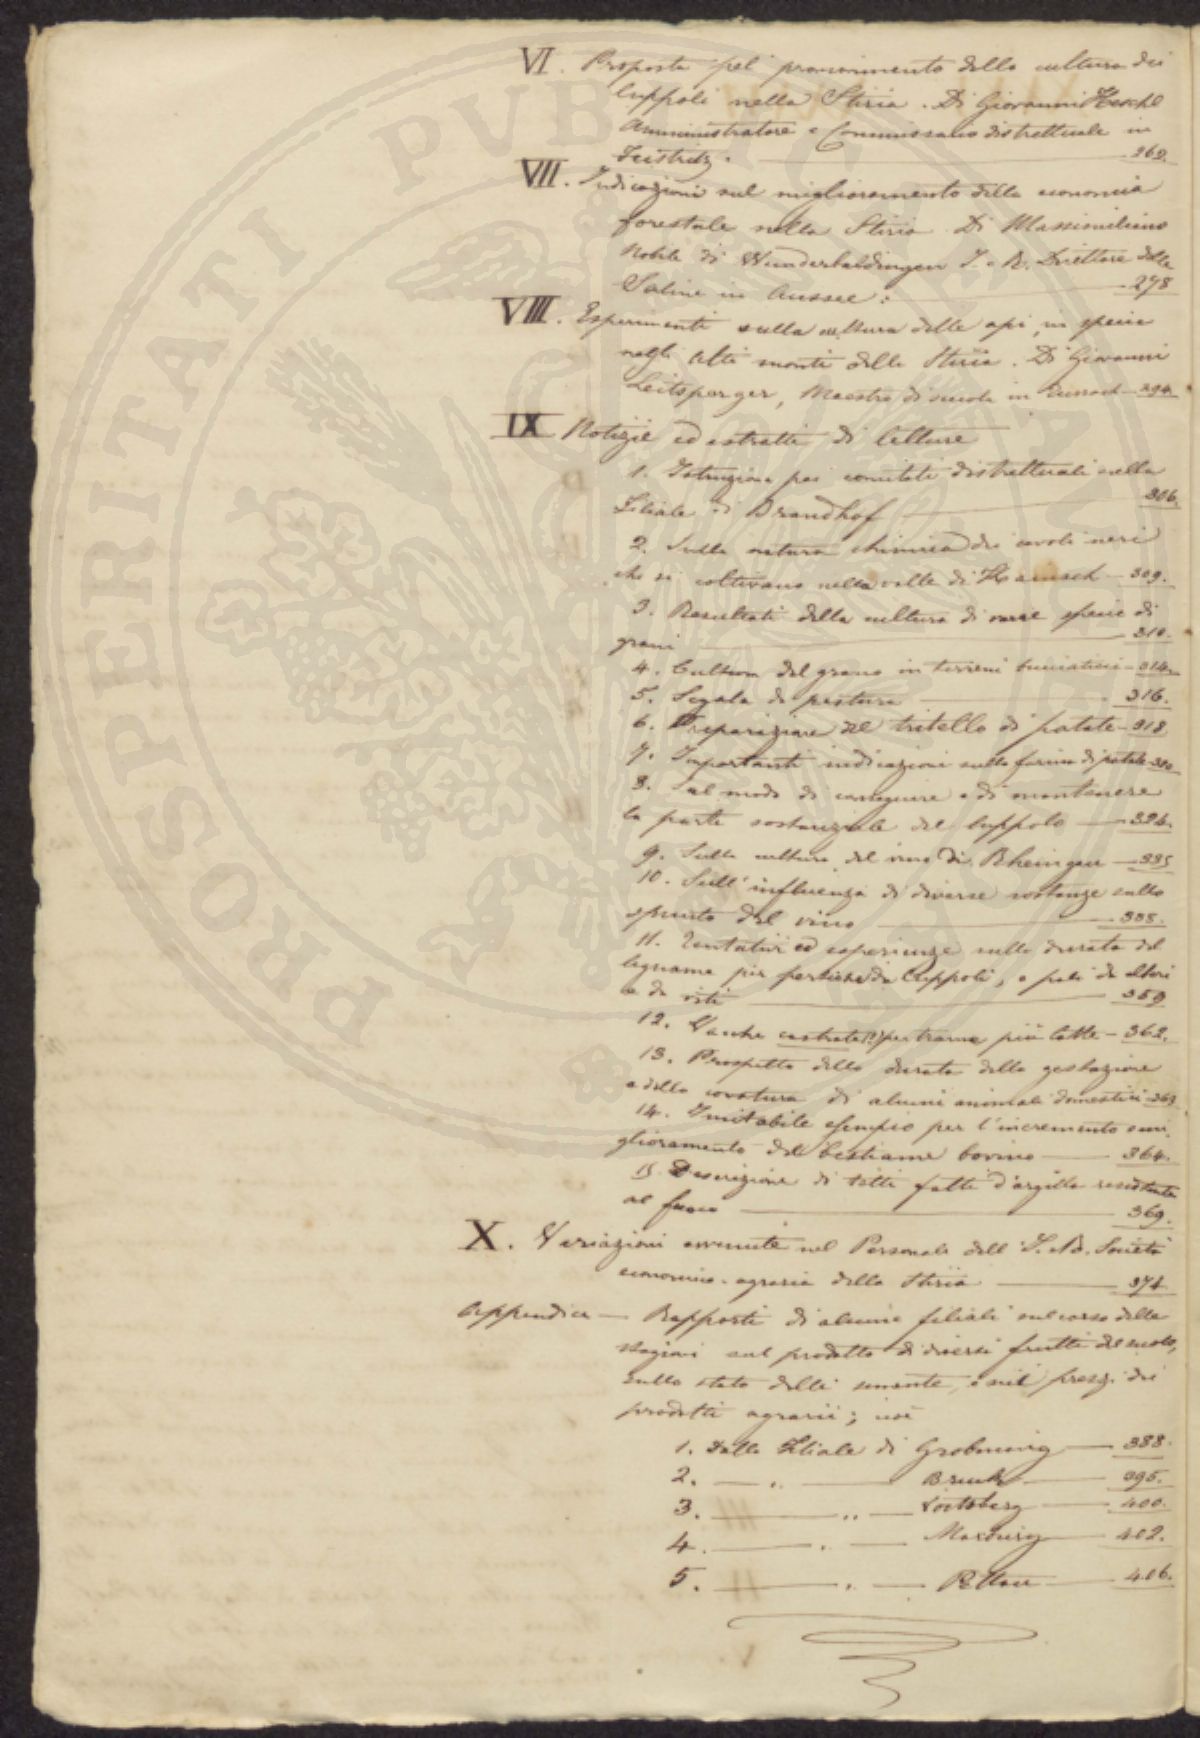 VI. Proposta pel promovimento della cultura dei
luppoli nella Stiria. Di Giovanni Heschl
Amministratore e Commissario distrettuale in
Feistritz. 262.
VII. Indicazioni sul miglioramento della economia
forestale nella Stiria. Di Massimiliano
Nobile di Wunderbaldingen I. R. Direttore delle
Saline in Aussee: 278
VIII. Esperimenti sulla cultura delle api, in specie
negli alti monti della Stiria. Di Giovanni
Leitsperger, Maestro di scuola in 294.
IX Notizie ed estratti di letture
1. Istruzione pei comitati distrettuali nella
Filiale di Brandhof 306.
2. Sulla natura chimica dei cavoli neri
che si coltivano nella valle di 309.
3. Resultati della cultura di varie specie di
grani 310.
4. Cultura del grano in terreni 314.
5. Segala da pastura 316.
6. Preparazione del tritello di patate 318
7. Importanti indicazioni sulla farina di patate 320
8. Sul modo di conseguire e di mantenere
la parte sostanziale del luppolo 324.
9. Sulla cultura del vino di Rheingau 335
10. Sull'influenza di diverse sostanze sullo
spunto del vino 355.
11. Tentativi ed esperienze sulla durata del
legname per pertiche da luppoli, e pali da alberi
e da viti 359
12. Vacche castrate (?) per trarne più latte 362.
13. Prospetto della durata della gestazione
e della covatura di alcuni animali domestici 363
14. Imitabile esempio per l'incremento e mi-
glioramento del bestiame bovino 364.
15. Descrizione di tetti fatti d'argilla resistente
al fuoco 369.
X. Variazioni avvenute nel Personale dell'I. R. Società
economico-agraria della Stiria 374
Appendice — Rapporti di alcune filiali sul corso delle
stagioni sul prodotto di diversi frutti del suolo,
sullo stato delle semente, e sui prezzi dei
prodotti agrarii; cioè
1. Dalla Filiale di Grobming 388.
2. — „ — Bruck 395.
3. — „ — Voitsberg 400.
4. — „ — Marburg 402.
5. — „ — Pettau 406.
PROSPERITATI PUBLICAE AUGENDAE